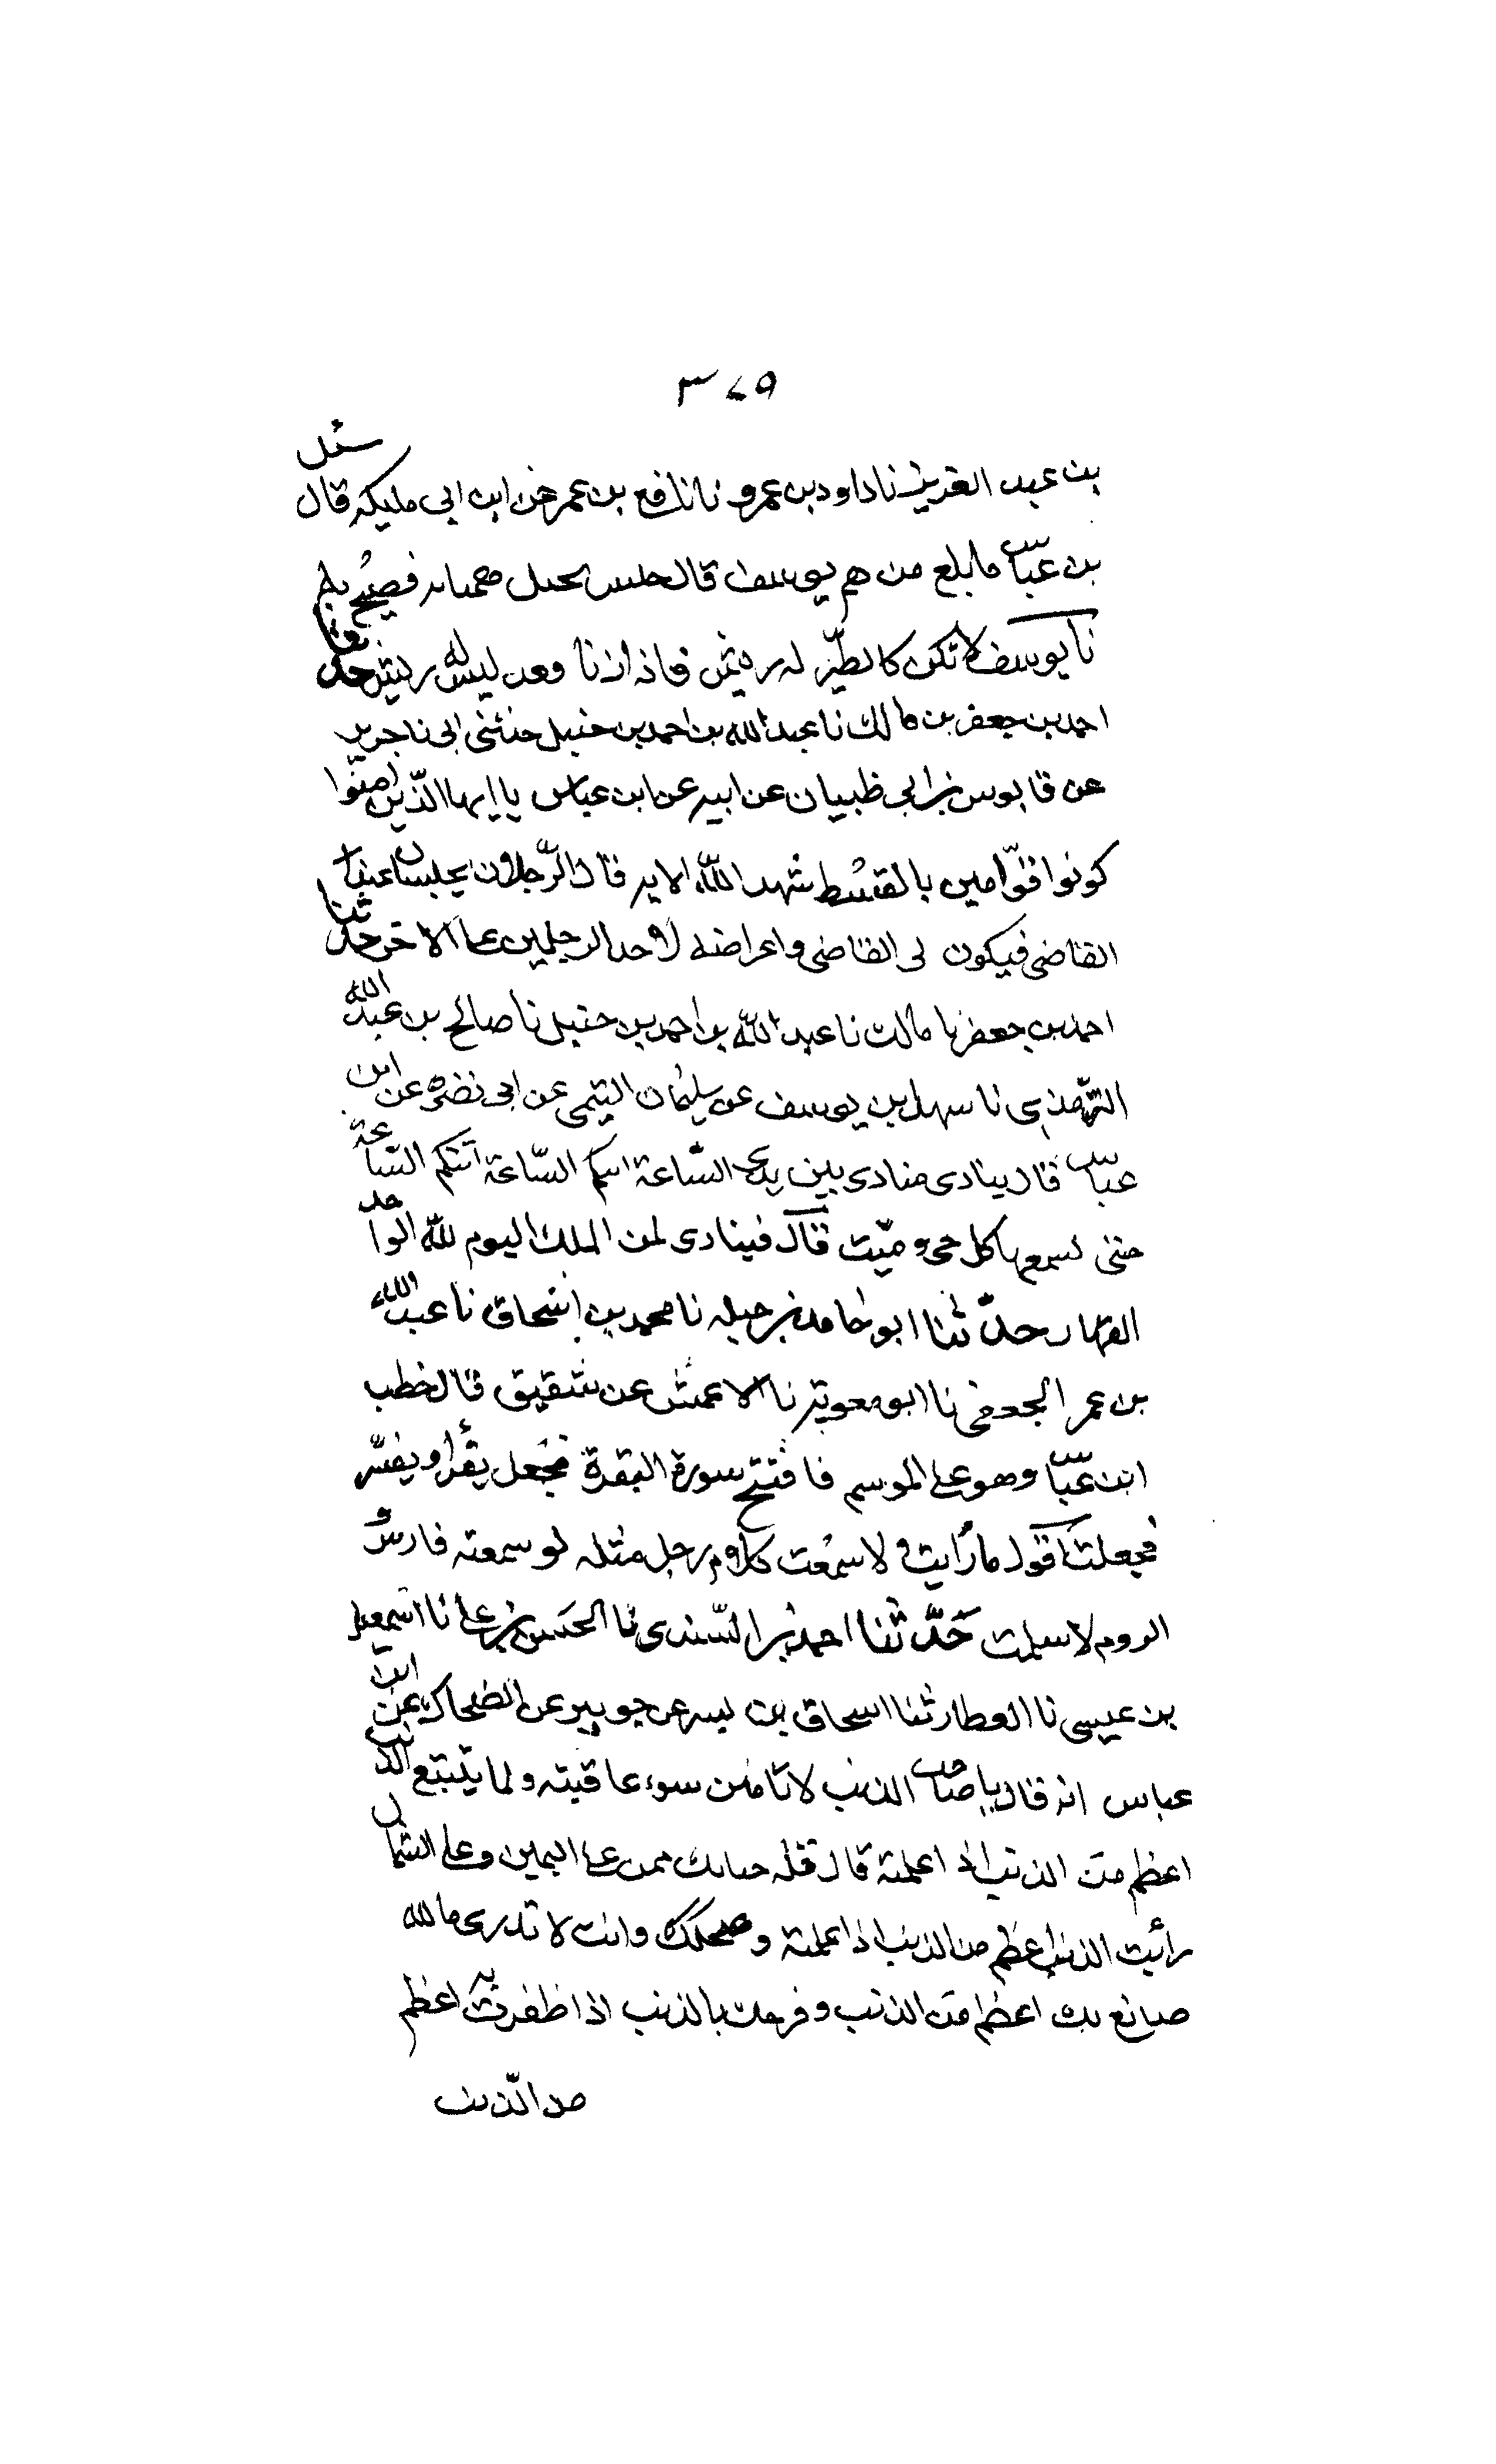 ٣٧٩
بن عبد العزيز نا داود بن عمرو نا نافع بن عمر عن ابن ابى مليكه قال سئل
بن عباس ما بلغ من هم يوسف قال جلس يحل هميانه فصيح به
يا يوسف لا تكن كالطير له ريش فاذا زنا وقعد ليس له ريش حدثنا
احمد بن جعفر بن مالك نا عبد الله بن احمد بن حنبل حدثنى ابى نا جرير
عن قابوس بن ابي ظبيان عن ابيه عن ابن عباس يا ايها الذين امنوا
كونوا قوّامين بالقسط شهدا لله الايه قال الرّجلان يجلسان عند
القاضى فيكون لى القاضى واعراضه لاحد الرجلين على الاخر حدثنا
احمد بن جعفر بن مالك نا عبد الله بن احمد بن حنبل نا صالح بن عبد الله
الترمذى نا سهل بن يوسف عن سليمان التيمى عن ابى نضرة عن ابن
عباس قال ينادى منادى بين يدى السّاعة اتتكم السّاعة اتتكم السّاعة
حتى يسمعها كل حى وميّت قال فينادى لمن الملك اليوم لله الواحد
القهار حدّثنا ابو حامد بن جبله نا محمد بن إسحاق نا عبد الله
بن عمر الجعفى نا ابو معوية نا الاعمش عن شقيق قال خطب
ابن عباس وهو على الموسم فافتتح سورة البقرة فجعل يقرأ ويفسّر
فجعلت اقول ما رأيت ولا سمعت كلام رجل مثله لو سمعته فارس و
الروم لاسلمت حَدّثنا احمد بن السّندى نا الحسن بن على نا اسمعيل
بن عيسى نا العطار ثنا اسحاق بن بشر عن جويبر عن الضحاك عن ابن
عباس انه قال يا صاحب الذنب لا تأمنن سوء عاقبته ولما يتبع الذنب
اعظم من الذنب اذا عملته قال قله حيائك ممن على اليمين وعلى الشمال
رأيت الذنب اعظم من الذنب اذا عملته وضحكك وانت لا تدرى ما الله
صانع بك اعظم من الذنب وفرحك بالذنب اذا ظفرت به اعظم
من الذنب